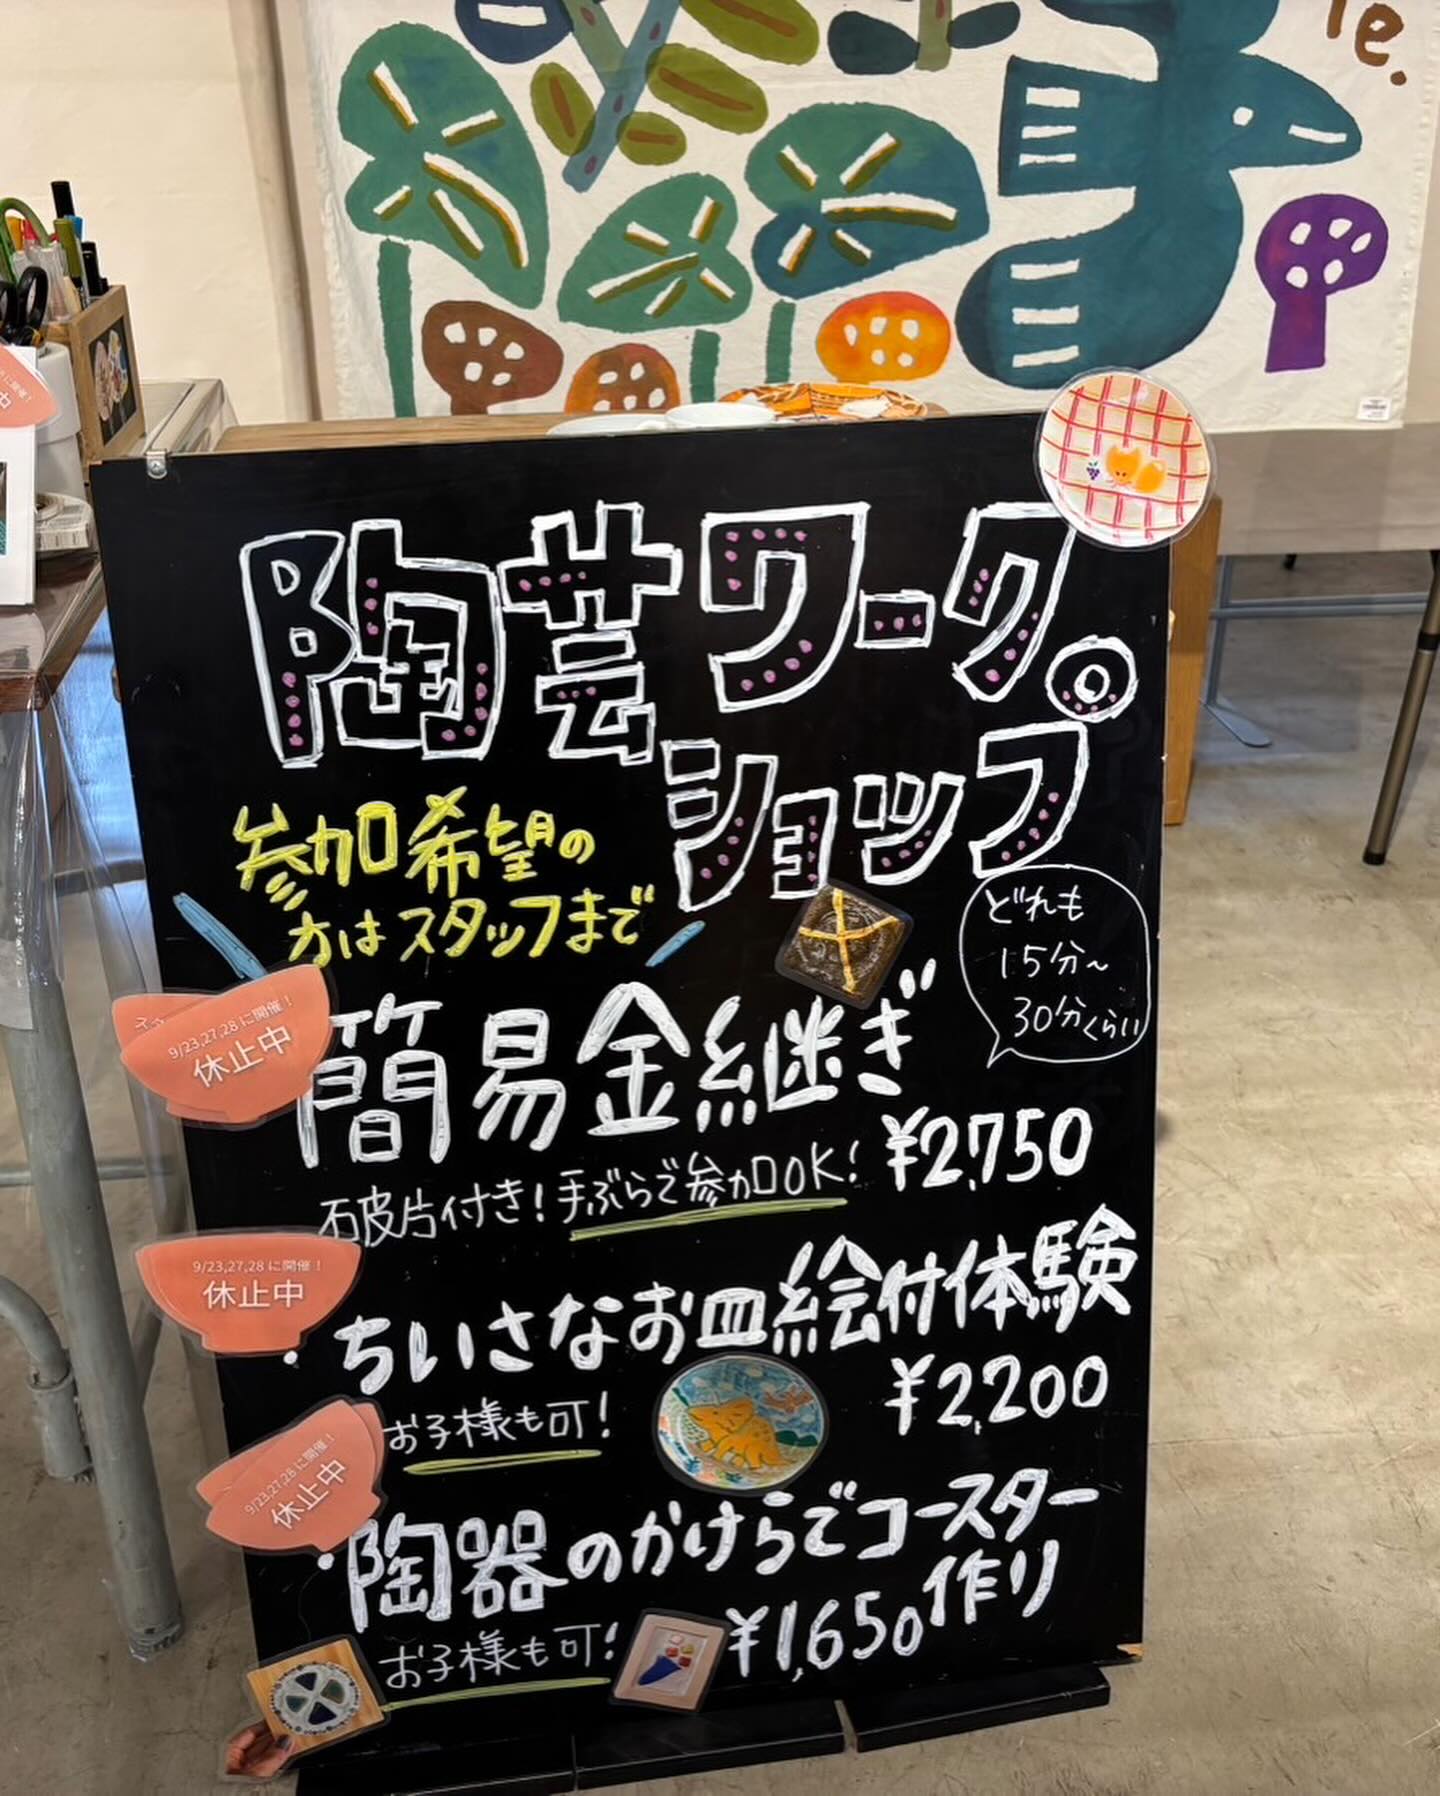 le.
陶芸ワーク。
ショップ
参加希望の
方はスタッフまで
どれも
15分～
30分くらい
9/23,27,28に開催！
休止中
簡易金継ぎ
¥2,750
破片付き！手ぶらで参加OK！
9/23,27,28に開催！
休止中
・ちいさなお皿絵付体験
¥2,200
お子様も可！
9/23,27,28に開催！
休止中
・陶器のかけらでコースター
作り
お子様も可！
¥1,650